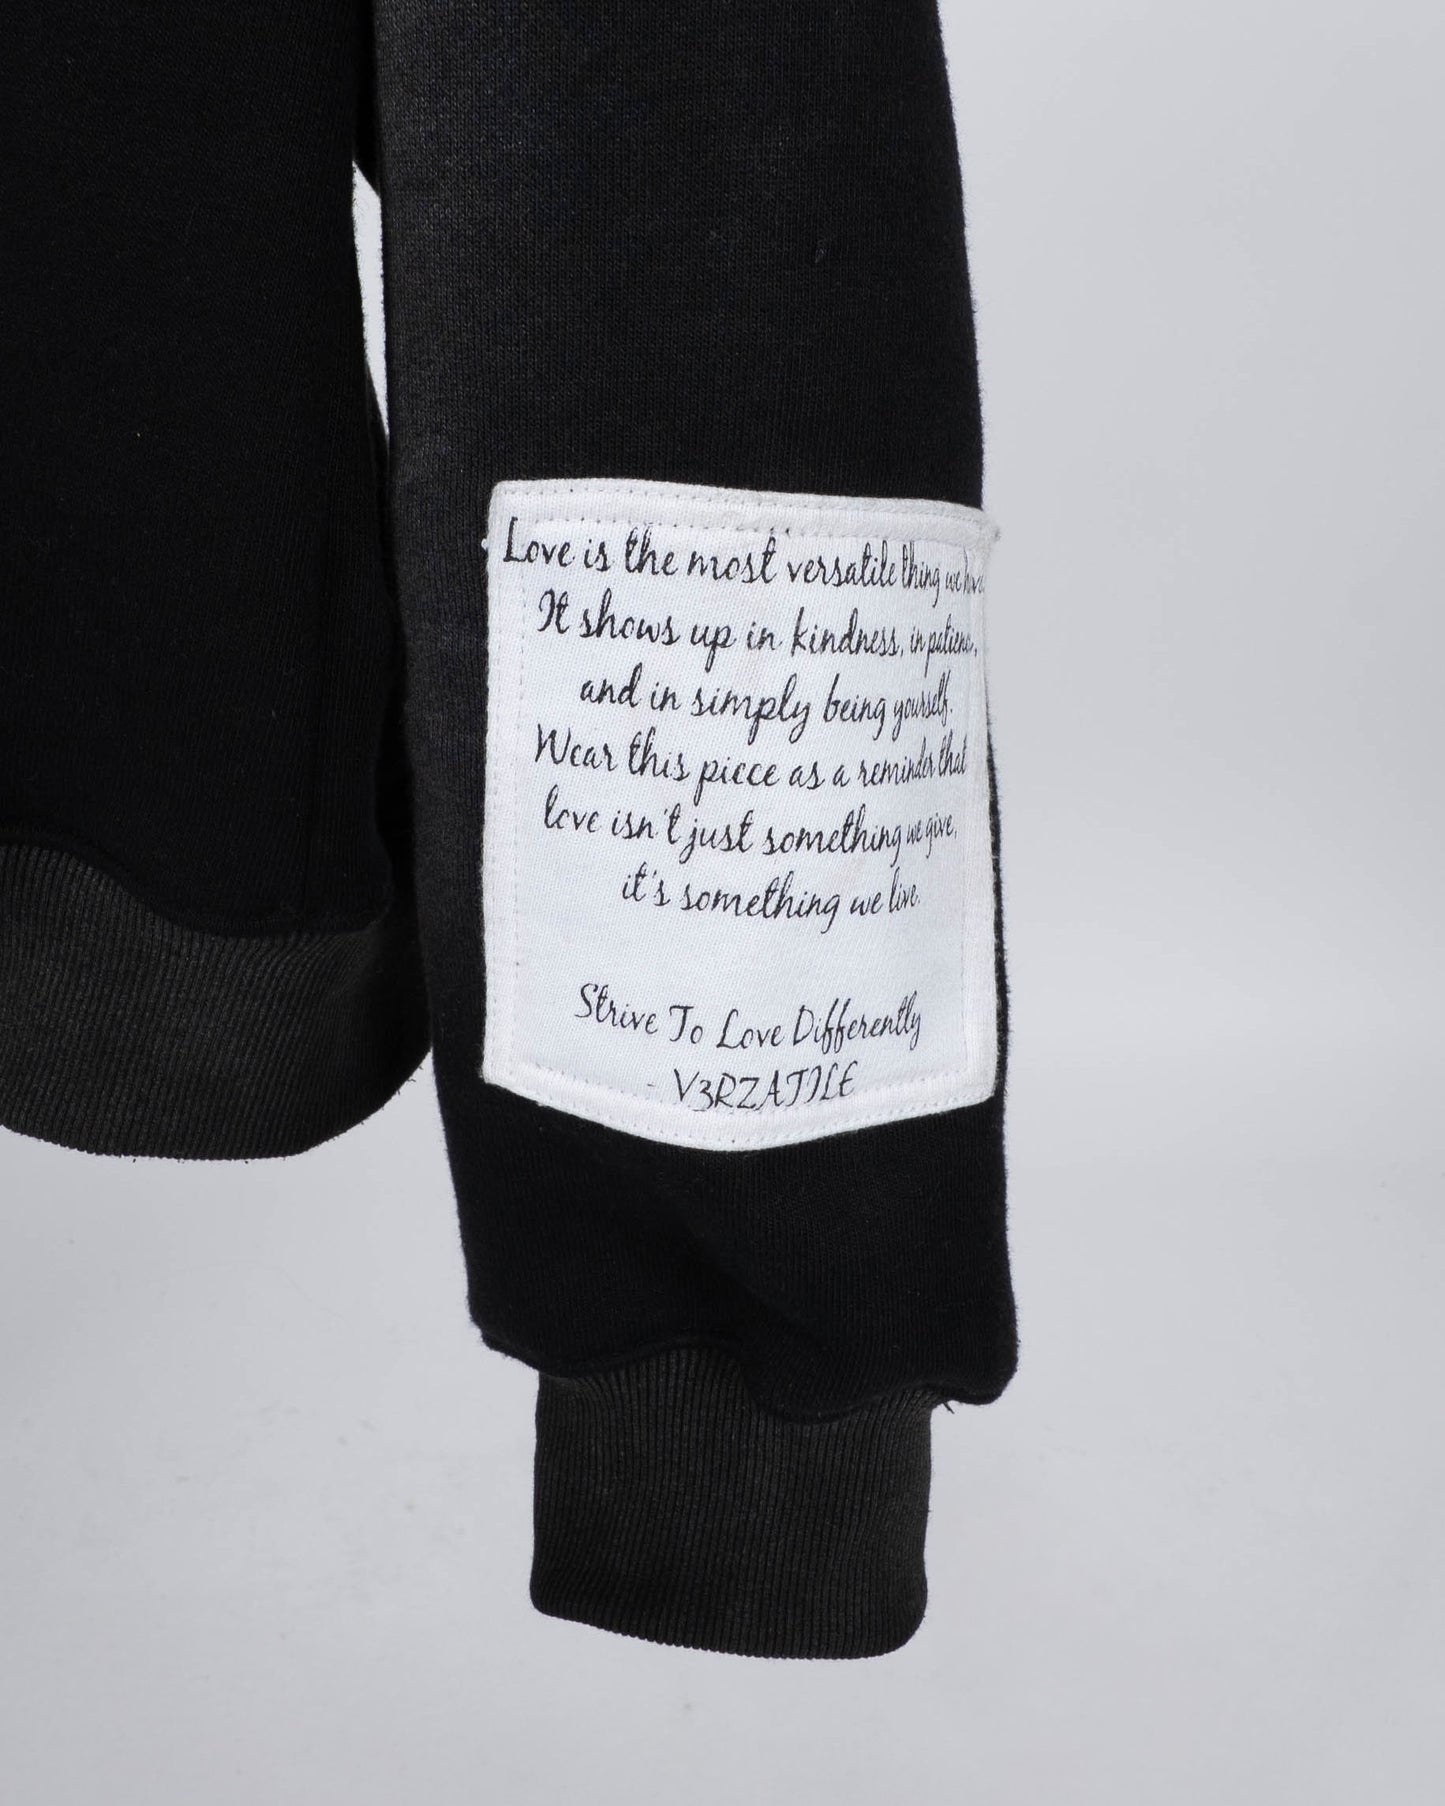 Love is the most versatile thing we have.
It shows up in kindness, in patience,
and in simply being yourself.
Wear this piece as a reminder that
love isn't just something we give,
it's something we live.
Strive To Love Differently
- V3RZATILE